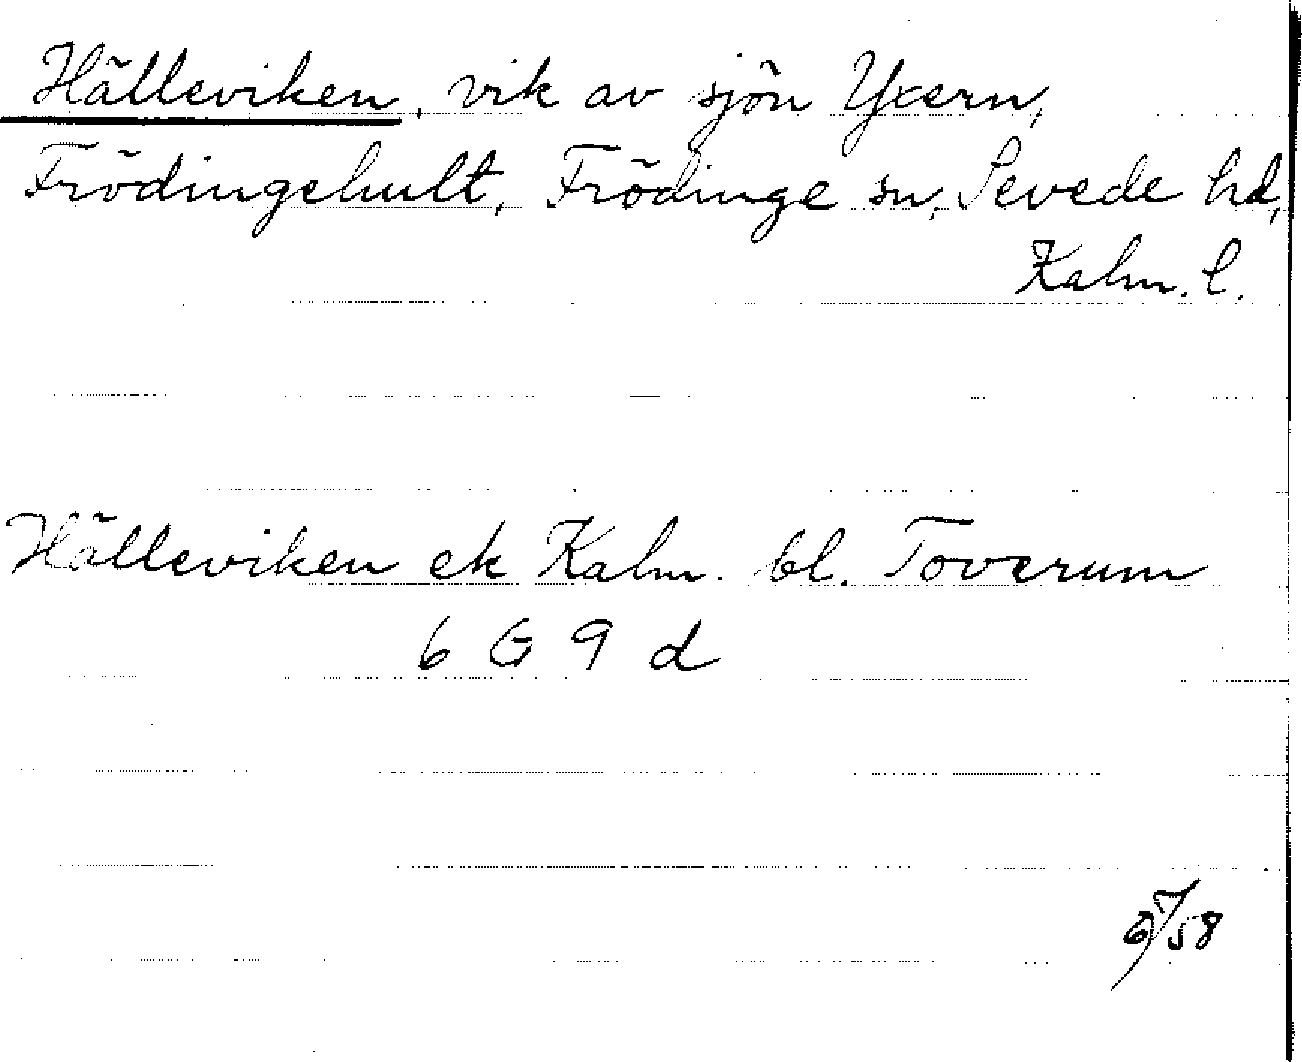 Hälleviken, vik av sjön Yxern,
Frödingehult, Frödinge sn, Sevede hd,
Kalm. l.
Hälleviken ek Kalm. bl. Toverum
6 G 9 d